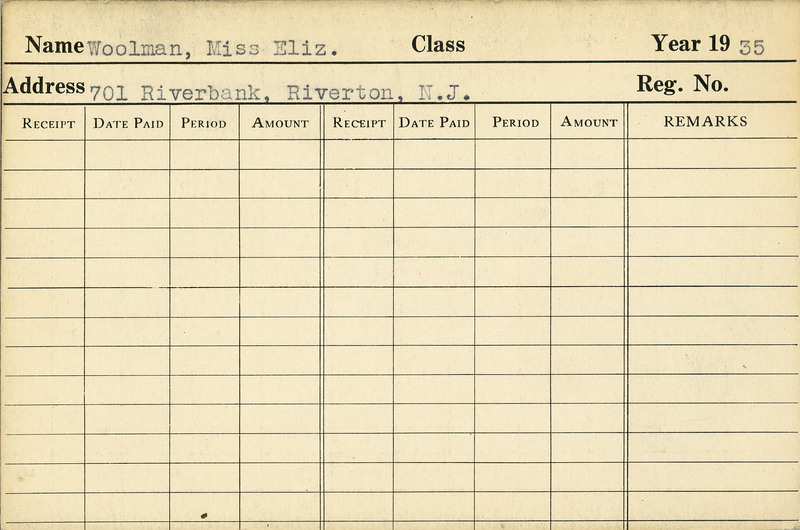 Name Woolman, Miss Eliz. Class Year 19 35
Address 701 Riverbank, Riverton, N.J. Reg. No.
RECEIPT DATE PAID PERIOD AMOUNT RECEIPT DATE PAID PERIOD AMOUNT REMARKS